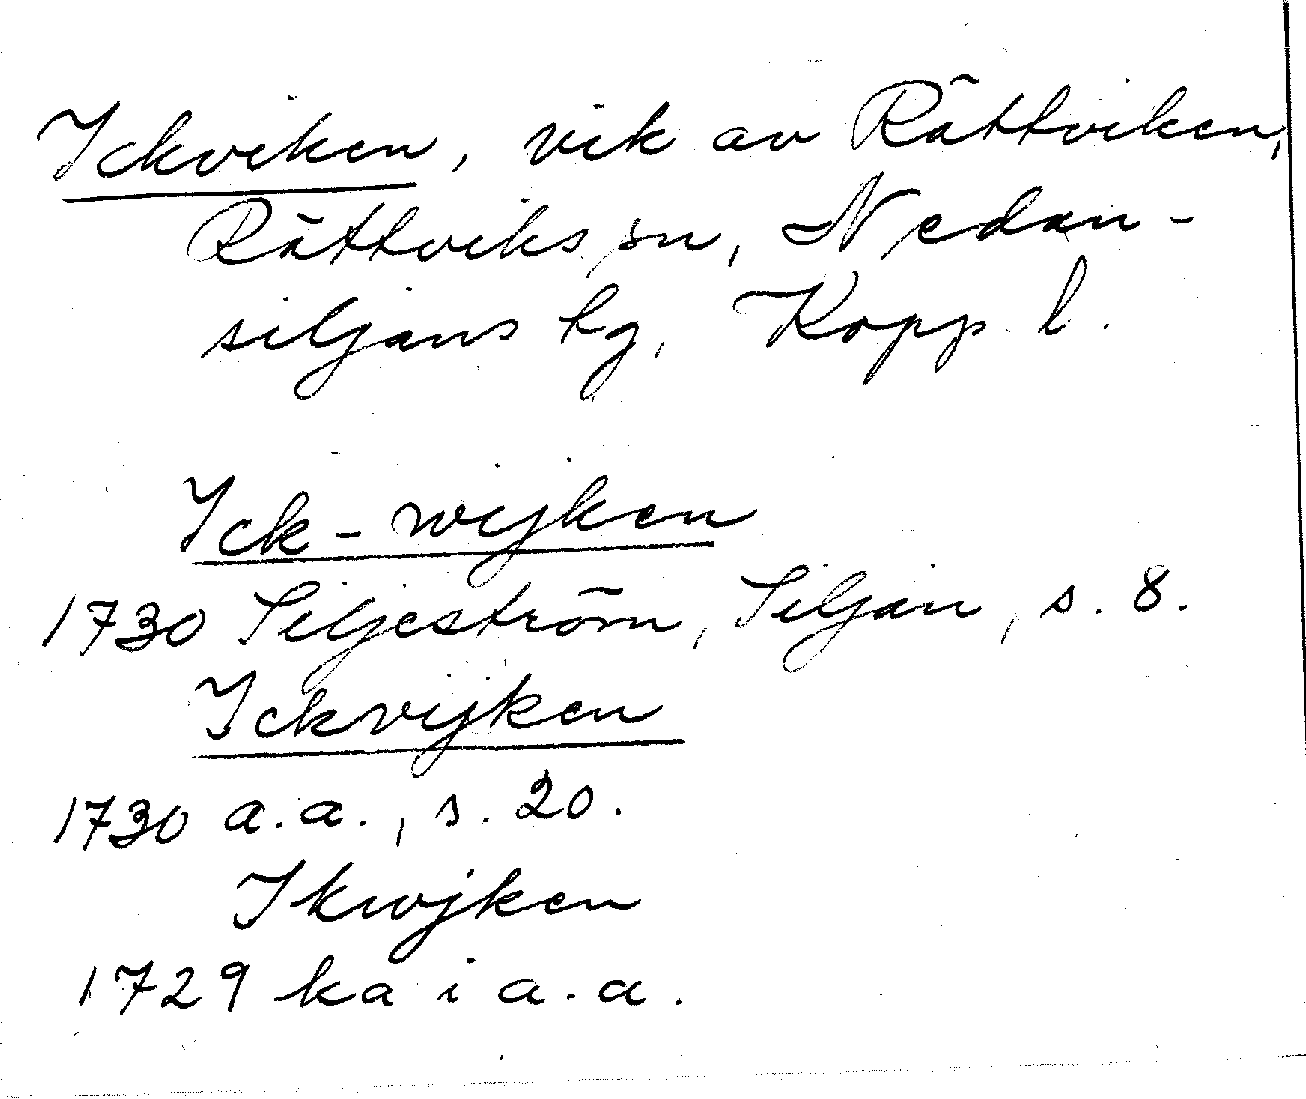 Ickviken, vik av Rättviken,
Rättviks sn, Nedan-
siljans hg, Kopp. l.
Ick-wijken
1730 Siljeström, Siljan, s. 8.
Ickvijken
1730 a.a., s. 20.
Ikwjken
1729 ka i a.a.